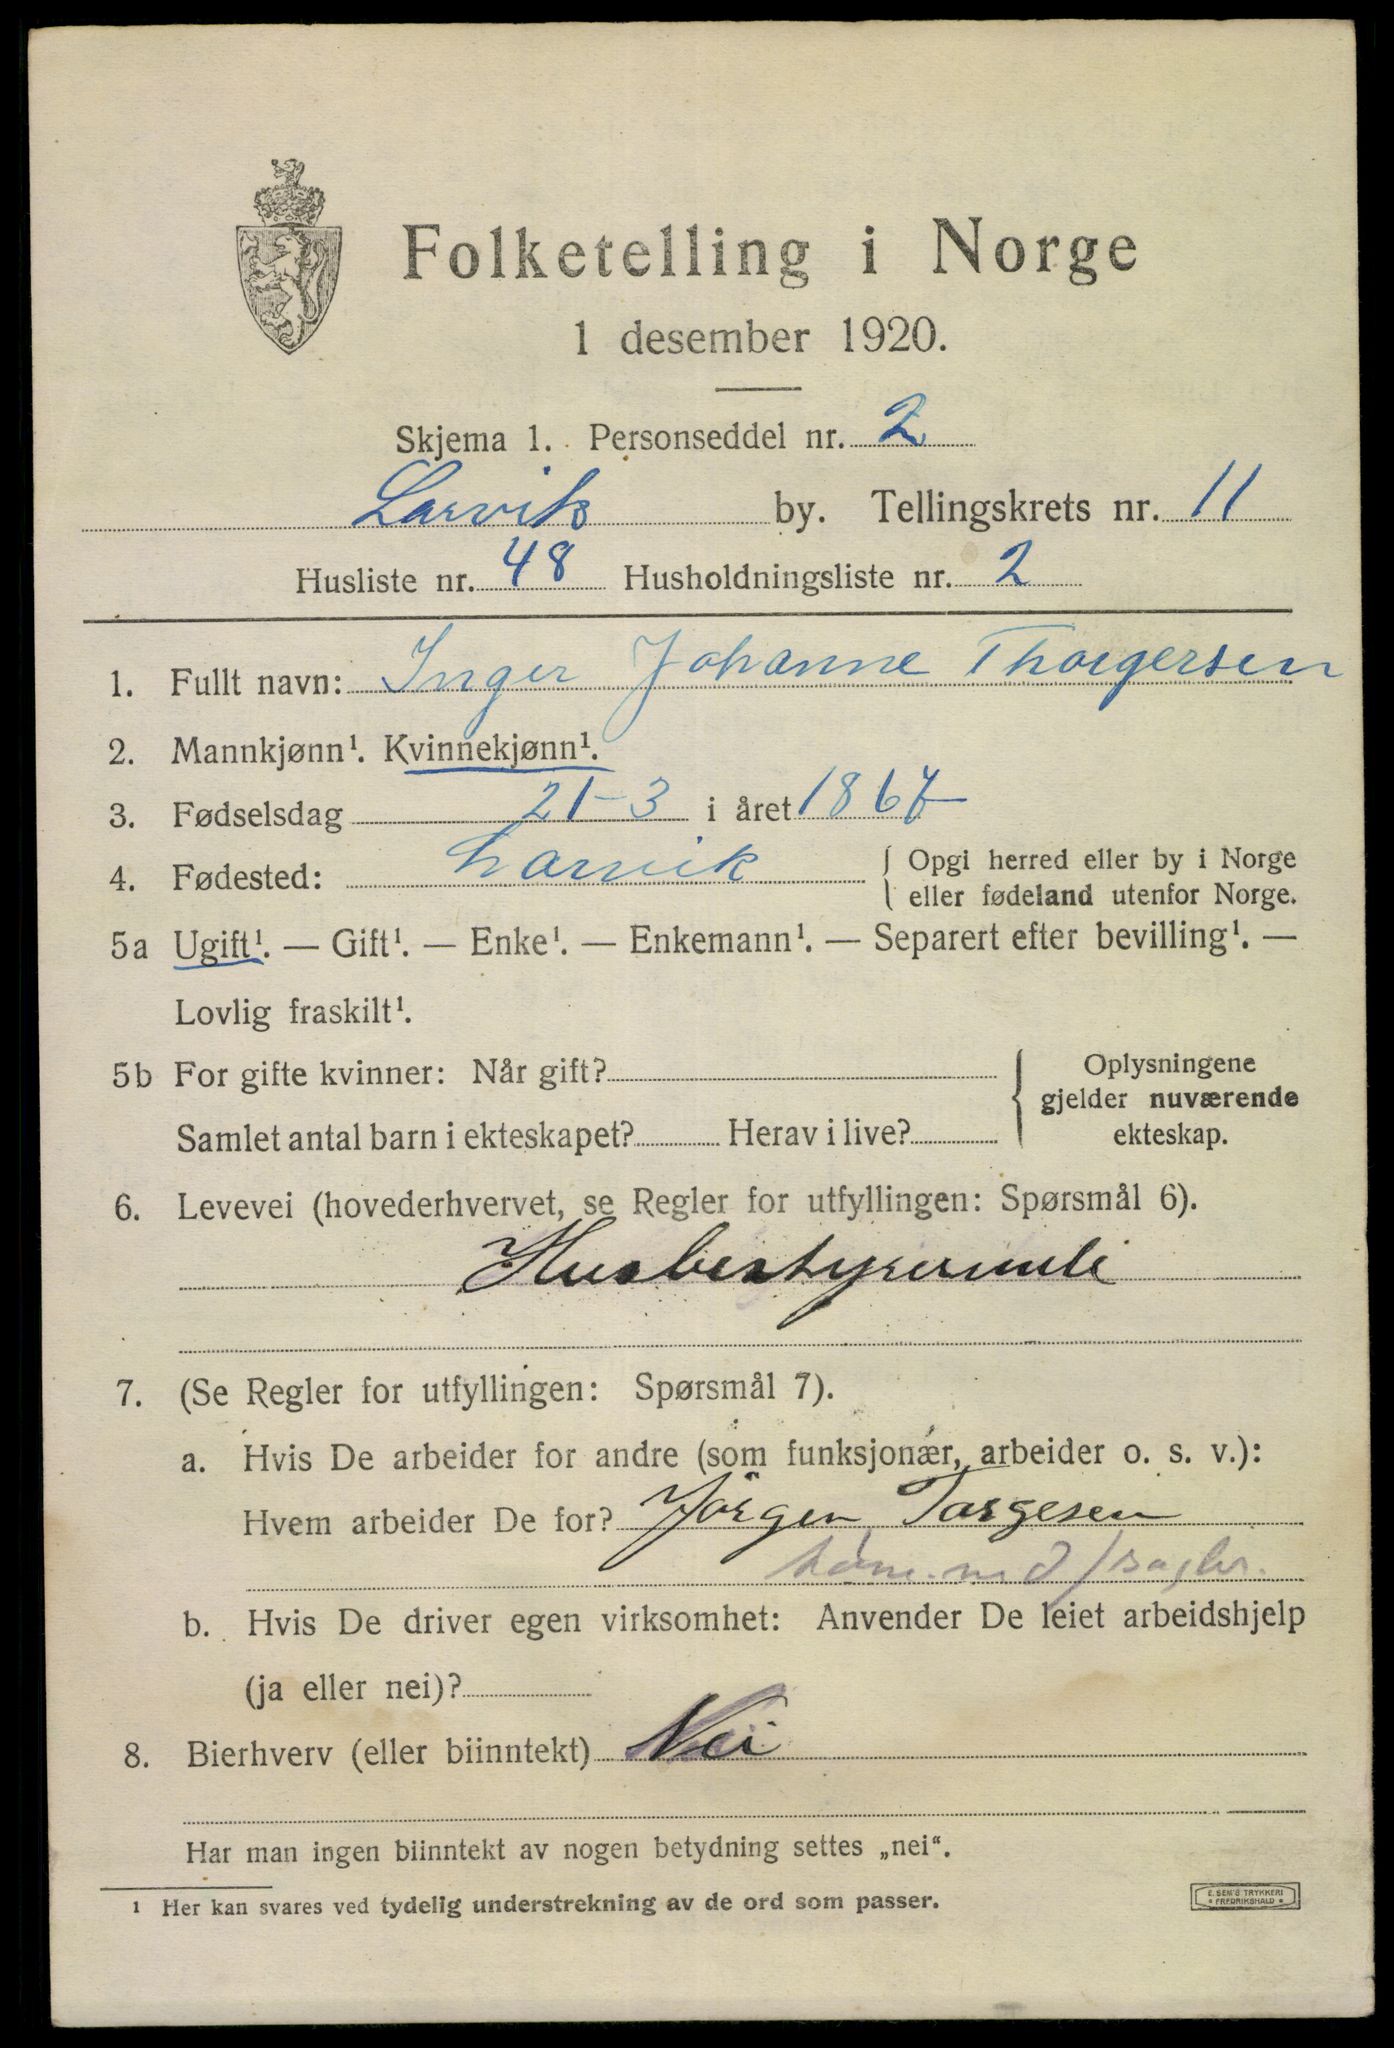 Folketelling i Norge
1 desember 1920.
Skjema 1. Personseddel nr. 2
Larvik by. Tellingskrets nr. 11
Husliste nr. 48 Husholdningsliste nr. 2
1. Fullt navn: Inger Johanne Thorgersen
2. Mannkjønn¹. Kvinnekjønn¹.
3. Fødselsdag 21-3 i året 1867
4. Fødested: Larvik { Opgi herred eller by i Norge
eller fødeland utenfor Norge.
5a Ugift¹. — Gift¹. — Enke¹. — Enkemann¹. — Separert efter bevilling¹. —
Lovlig fraskilt¹.
5b For gifte kvinner: Når gift?
Samlet antal barn i ekteskapet? Herav i live?
{ Oplysningene
gjelder nuværende
ekteskap.
6. Levevei (hovederhvervet, se Regler for utfyllingen: Spørsmål 6).
Husbestyrerinde
7. (Se Regler for utfyllingen: Spørsmål 7).
a. Hvis De arbeider for andre (som funksjonær, arbeider o. s. v.):
Hvem arbeider De for? Jørgen Torgesen
b. Hvis De driver egen virksomhet: Anvender De leiet arbeidshjelp
(ja eller nei)?
8. Bierhverv (eller biinntekt) Nei
Har man ingen biinntekt av nogen betydning settes „nei“.
¹ Her kan svares ved tydelig understrekning av de ord som passer.
E. SEM'S TRYKKERI
FREDRIKSHALD